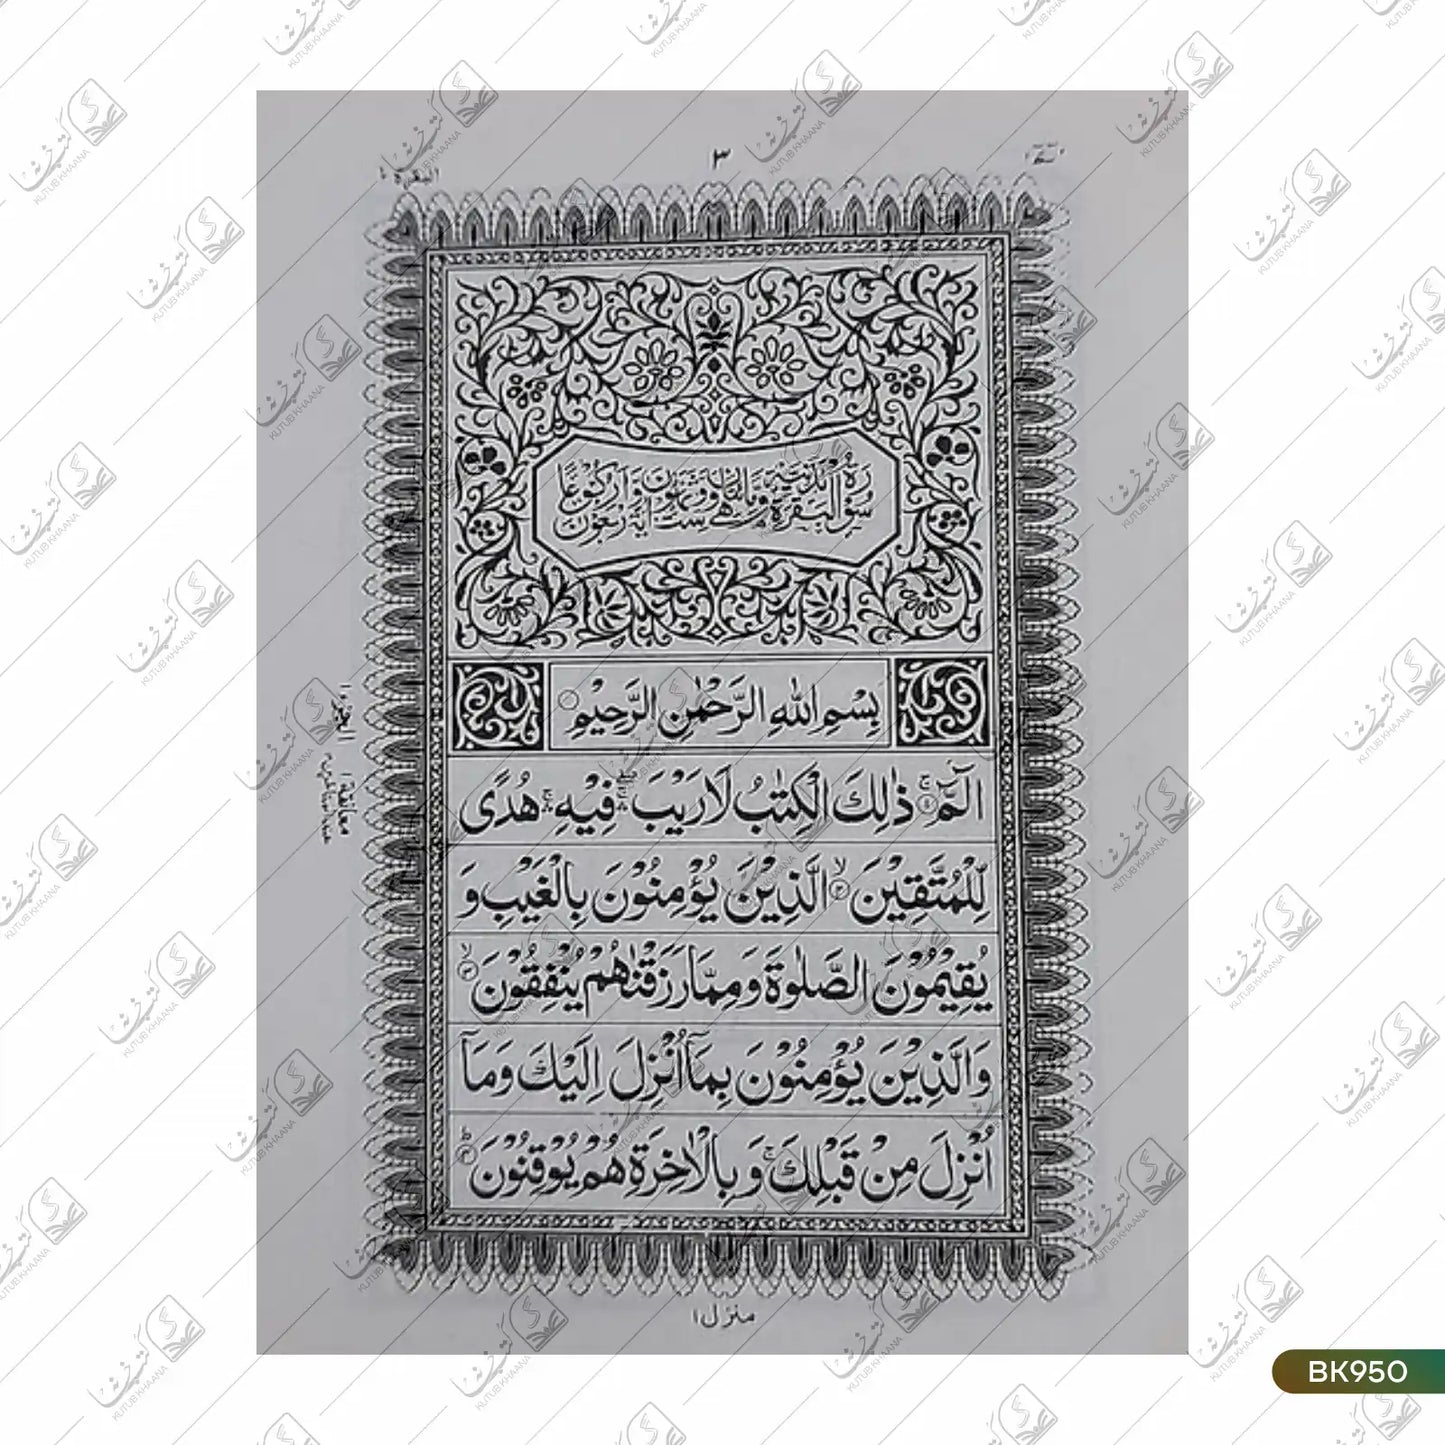 ٣
البقرة ٢
سورة البقرة مدنية وهي مائتان وست وثمانون آية وأربعون ركوعا
بِسْمِ اللّٰهِ الرَّحْمٰنِ الرَّحِيْمِ
الٓمّٓ ۚ ذٰلِكَ الْكِتٰبُ لَا رَيْبَ ۛ فِيْهِ ۛ هُدًى
لِّلْمُتَّقِيْنَ ۙ الَّذِيْنَ يُؤْمِنُوْنَ بِالْغَيْبِ وَ
يُقِيْمُوْنَ الصَّلٰوةَ وَمِمَّا رَزَقْنٰهُمْ يُنْفِقُوْنَ ۙ
وَالَّذِيْنَ يُؤْمِنُوْنَ بِمَآ اُنْزِلَ اِلَيْكَ وَمَآ
اُنْزِلَ مِنْ قَبْلِكَ ۚ وَبِالْاٰخِرَةِ هُمْ يُوْقِنُوْنَ ؕ
منزل ١
معانقة ١
KUTUB KHAANA
BK950